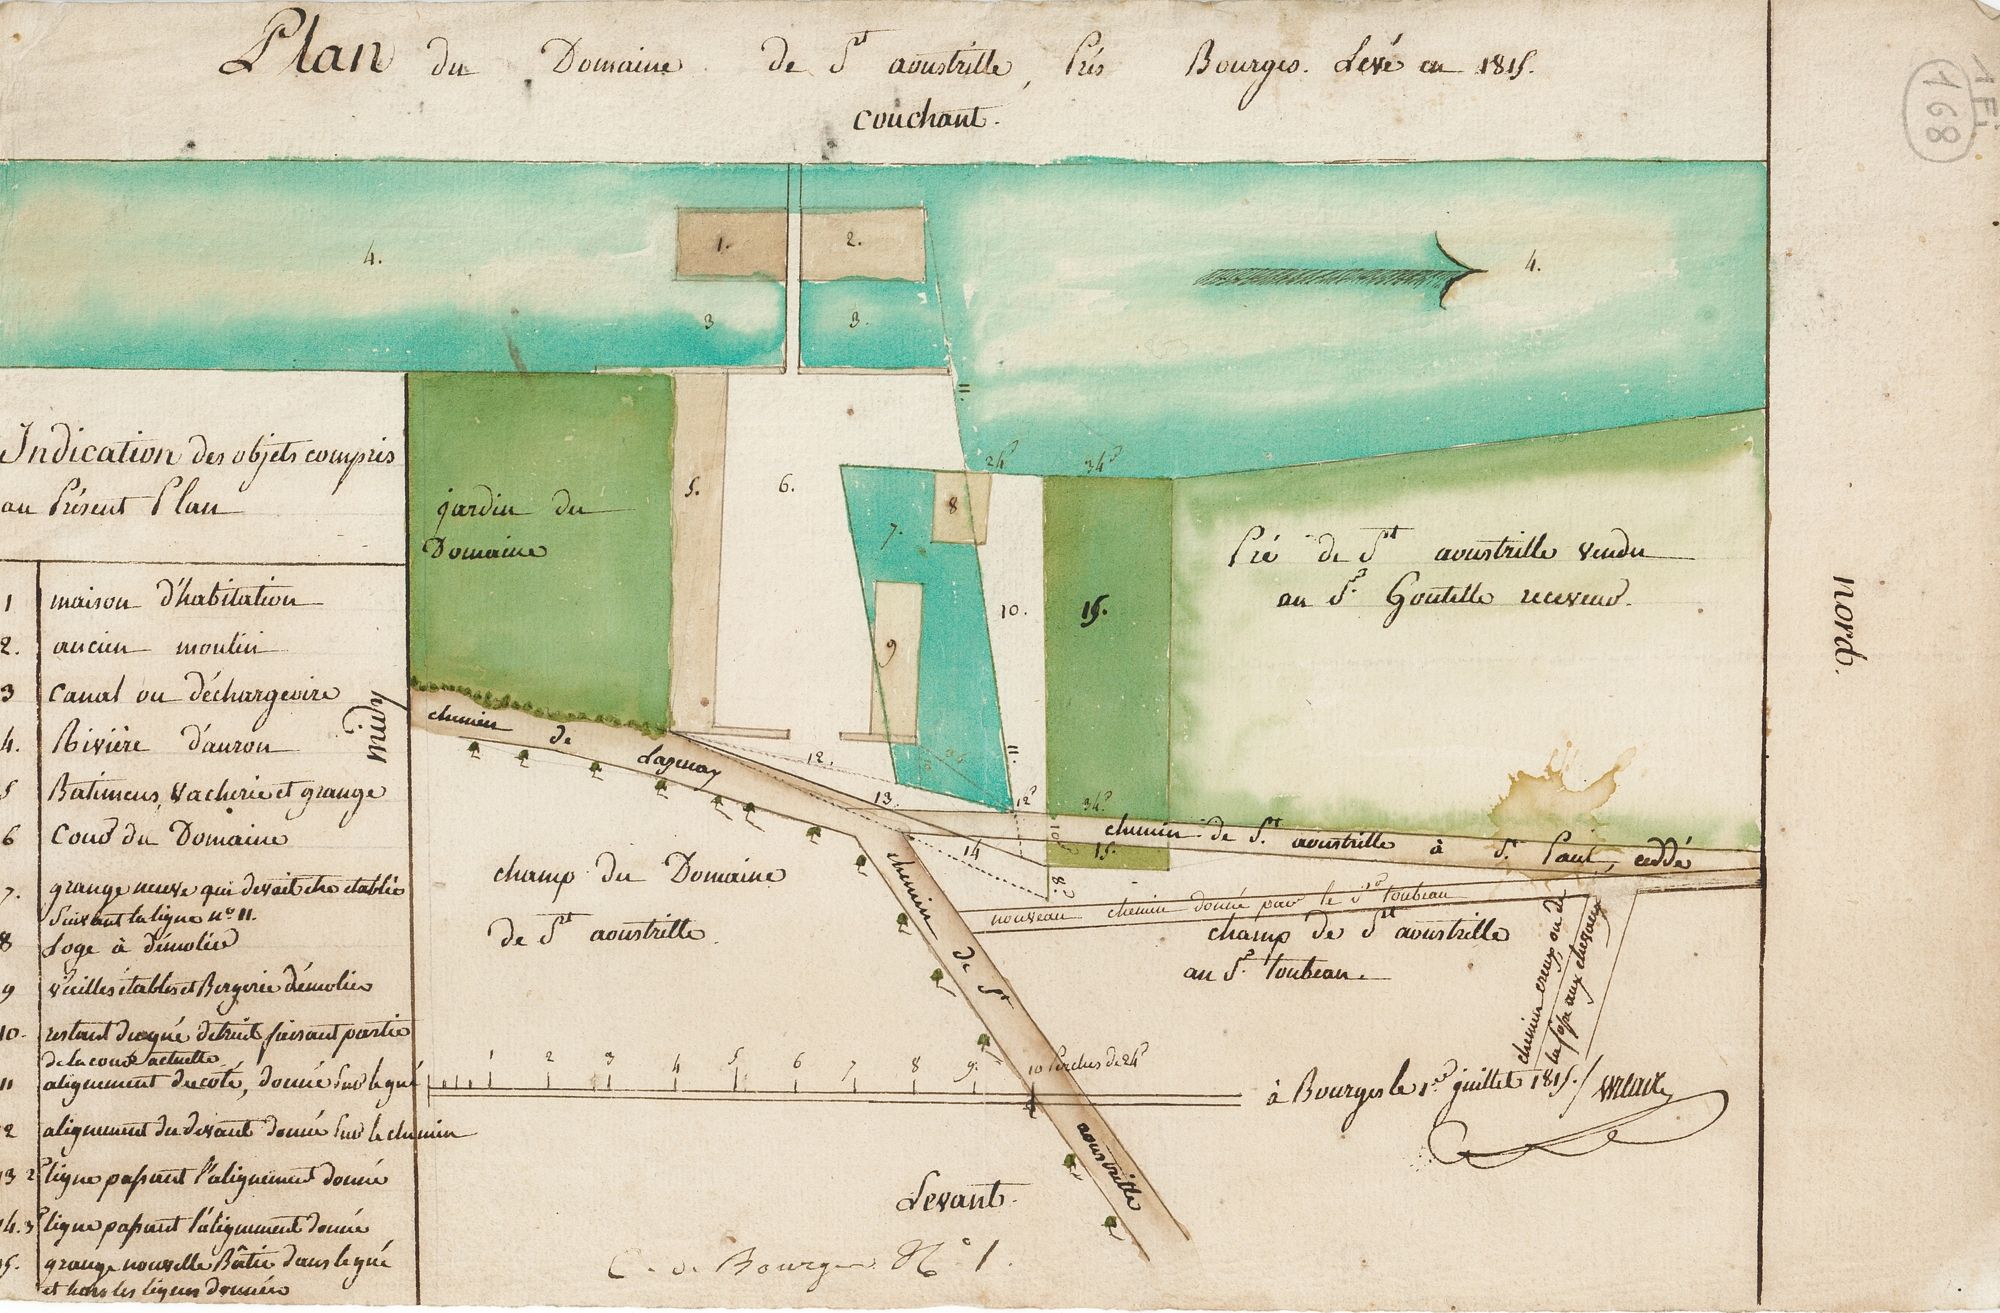 Plan du Domaine de St aoustrille, Près Bourges. Levé en 1815.
couchant.
1 Fi
168
4.
1.
2.
3
3.
4.
Indication des objets compris
au Présent Plan
1 maison d'habitation
2. ancien moulin
3 Canal ou déchargeoire
4. Rivière d'auron
5 Batimens, vacherie et grange
6 Cour du Domaine
7. grange neuve qui devait etre etablie
suivant la ligne n° 11.
8 Loge à démolir
9 vieilles étables et Bergerie démolies
10. restant du gué detruit, faisant partie
de la cour actuelle
11 alignement du coté, donné sur le gué
12 alignement du devant donné sur le chemin
13 2e ligne passant l'alignement donné
14. 3e ligne passant l'alignement donné
15. grange nouvelle Bâtie dans le gué
et hors les lignes données
midy
jardin du
Domaine
5.
6.
7.
8
9
10.
11
11
24P
34P
15.
Pré de St aoustrille vendu
au Sr. Goutelle receveur.
nord.
chemin de Lazenay
12.
13.
14
12P
34P
15.
10P
8P
chemin de St. aoustrille à St. Paul, ceddé
nouveau chemin donné par le Sr toubeau
champ du Domaine
de St aoustrille.
chemin de St aoustrille
champ de St aoustrille
au Sr. toubeau.
chemin creux ou de
la fosse aux chevaux
1 2 3 4 5 6 7 8 9. 10 Perches de 24P
à Bourges le 1er juillet 1815.
Levant.
C. de Bourges N° 1.